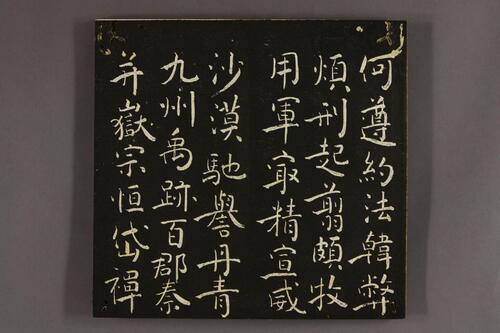 何遵約法韓弊
煩刑起翦頗牧
用軍㝡精宣威
沙漠馳譽丹青
九州禹跡百郡秦
并嶽宗恒岱禪